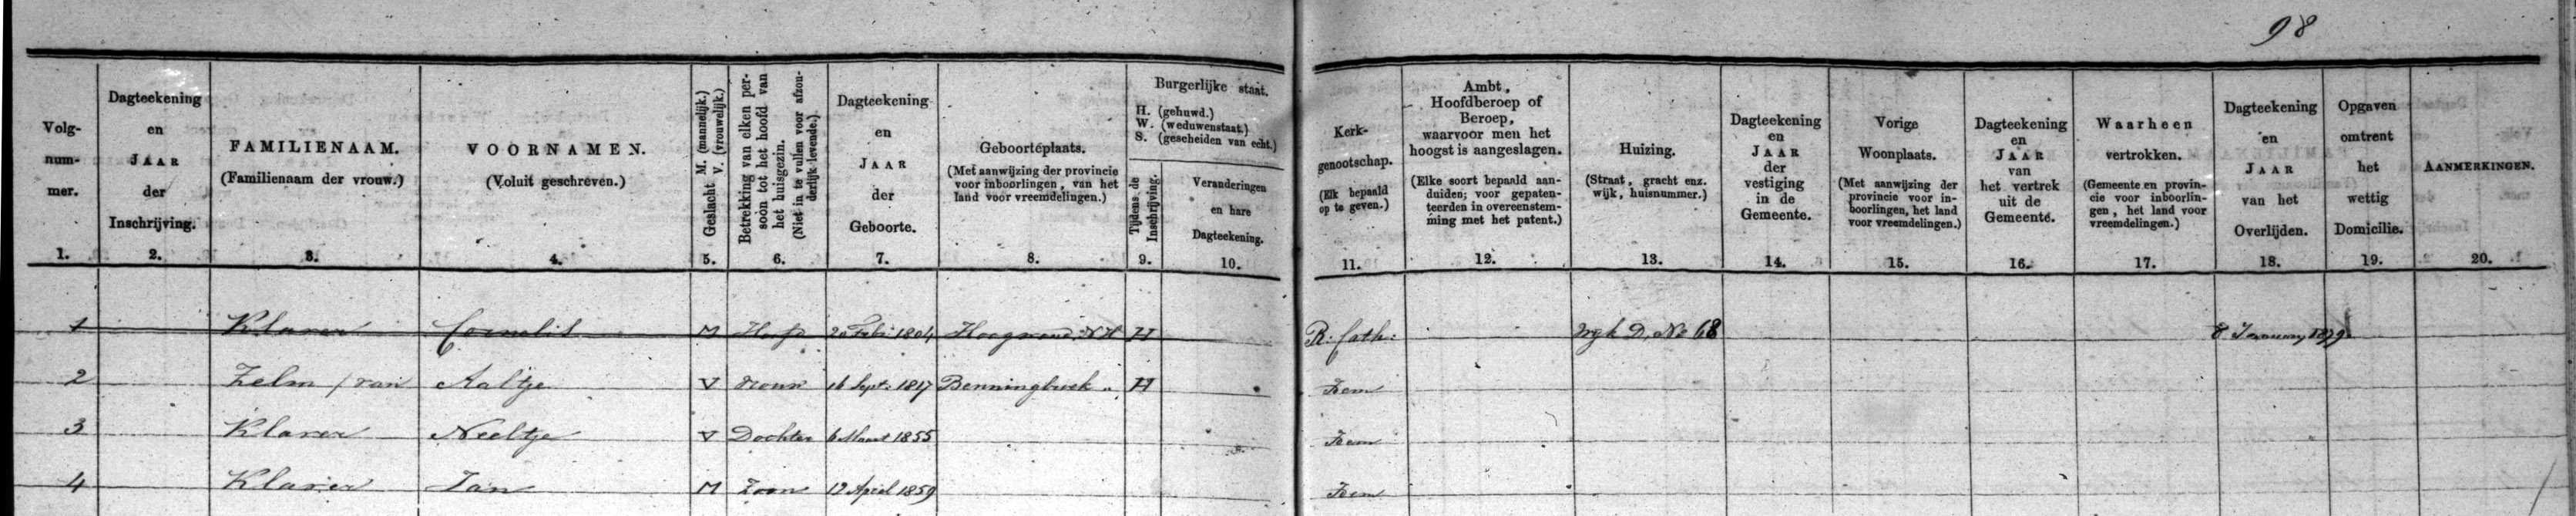 98
Volg-
num-
mer.
Dagteekening
en
JAAR
der
Inschrijving.
FAMILIENAAM.
(Familienaam der vrouw.)
VOORNAMEN.
(Voluit geschreven.)
Geslacht M. (mannelijk.)
V. (vrouwelijk.)
Betrekking van elken per-
soon tot het hoofd van
het huisgezin.
(Niet in te vullen voor afzon-
derlijk levende.)
Dagteekening
en
JAAR
der
Geboorte.
Geboorteplaats.
(Met aanwijzing der provincie
voor inboorlingen, van het
land voor vreemdelingen.)
Burgerlijke staat.
H. (gehuwd.)
W. (weduwenstaat.)
S. (gescheiden van echt.)
Tijdens de
Inschrijving.
Veranderingen
en hare
Dagteekening.
Kerk-
genootschap.
(Elk bepaald
op te geven.)
Ambt,
Hoofdberoep of
Beroep,
waarvoor men het
hoogst is aangeslagen.
(Elke soort bepaald aan-
duiden; voor gepaten-
teerden in overeenstem-
ming met het patent.)
Huizing.
(Straat, gracht enz.
wijk, huisnummer.)
Dagteekening
en
JAAR
der
vestiging
in de
Gemeente.
Vorige
Woonplaats.
(Met aanwijzing der
provincie voor in-
boorlingen, het land
voor vreemdelingen.)
Dagteekening
en
JAAR
van
het vertrek
uit de
Gemeente.
Waarheen
vertrokken.
(Gemeente en provin-
cie voor inboorlin-
gen, het land voor
vreemdelingen.)
Dagteekening
en
JAAR
van het
Overlijden.
Opgaven
omtrent
het
wettig
Domicilie.
AANMERKINGEN.
1. 2. 3. 4. 5. 6. 7. 8. 9. 10. 11. 12. 13. 14. 15. 16. 17. 18. 19. 20.
1 Klaver Cornelis M Hoofd 20 Febr. 1804 Hoogwoud N.H H R: Cath: Wijk D, No 68 8 January 1879
2 Zelm / van Aaltje V vrouw 16 Sept. 1817 Benningbroek " H Idem
3 Klaver Neeltje V Dochter 6 Maart 1855 Idem
4 Klaver Jan M Zoon 12 April 1859 Idem